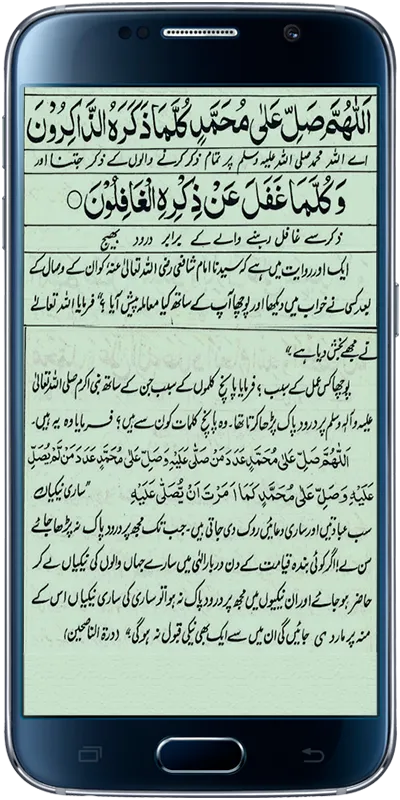 اَللّٰهُمَّ صَلِّ عَلٰی مُحَمَّدٍ کُلَّمَا ذَکَرَهُ الذَّاکِرُوْنَ
اے اللہ محمد صلی اللہ علیہ وسلم پر تمام ذکر کرنے والوں کے ذکر جتنا اور
وَ کُلَّمَا غَفَلَ عَنْ ذِکْرِهِ الْغَافِلُوْنَ ○
ذکر سے غافل رہنے والے کے برابر درود بھیج
ایک اور روایت میں ہے کہ سیدنا امام شافعی رضی اللہ تعالیٰ عنہ کو ان کے وصال کے
بعد کسی نے خواب میں دیکھا اور پوچھا آپ کے ساتھ کیا معاملہ پیش آیا؟ "فرمایا اللہ تعالےٰ
نے مجھے بخش دیا ہے"
پوچھا کس عمل کے سبب؟ فرمایا پانچ کلموں کے سبب جن کے ساتھ نبی اکرم صلی اللہ تعالیٰ
علیہ وآلہ وسلم پر درود پاک پڑھا کرتا تھا۔ وہ پانچ کلمات کون سے ہیں؟ فرمایا وہ یہ ہیں۔
اَللّٰهُمَّ صَلِّ عَلٰی مُحَمَّدٍ عَدَدَ مَنْ صَلّٰی عَلَیْهِ وَصَلِّ عَلٰی مُحَمَّدٍ عَدَدَ مَنْ لَّمْ یُصَلِّ
عَلَیْهِ وَصَلِّ عَلٰی مُحَمَّدٍ کَمَا اَمَرْتَ اَنْ یُّصَلّٰی عَلَیْهِ "ساری نیکیاں
سب عبادتیں اور ساری دعائیں روک دی جاتی ہیں۔ جب تک مجھ پر درود پاک نہ پڑھا جائے
سن لے! اگر کوئی بندہ قیامت کے دن دربار الٰہی میں سارے جہاں والوں کی نیکیاں لے کر
حاضر ہو جائے اور ان نیکیوں میں مجھ پر درود پاک نہ ہو تو ساری کی ساری نیکیاں اس کے
منہ پر مار دی جائیں گی ان میں سے ایک بھی نیکی قبول نہ ہو گی" (درۃ الناصحین)